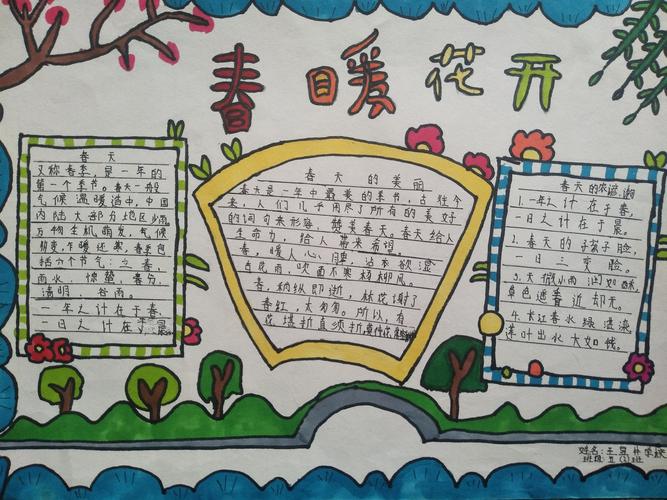 春暖花开
春天
又称春季,是一年的
第一个季节。春天一般
气候温暖适中,中国
内陆大部分地区少雨
万物生机萌发,气候
多变,乍暖还寒,春季包
括六个节气:立春、
雨水、惊蛰、春分、
清明、谷雨。
一年之计在于春,
一日之计在于晨
春天的美丽
春天是一年中最美的季节,古往今
来,人们几乎用尽了所有的美好
的词句来形容,赞美春天。春天给人
生命力,给人带来希望。
春,暖人心脾,沾衣欲湿
杏花雨,吹面不寒杨柳风。
春,稍纵即逝,林花谢了
春红,太匆匆。所以,有
花堪折直须折,莫待花
春天的农谚、谚
1.一年之计在于春,
一日之计在于晨。
2.春天的孩子脸,
一日三变脸。
3.天街小雨润如酥,
草色遥看近却无。
4.长江春水绿堪染,
莲叶出水大如钱。
姓名:王
班级五(2)班